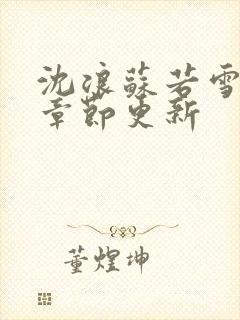 沈浪蘇若雪
章節更新
董煌坤